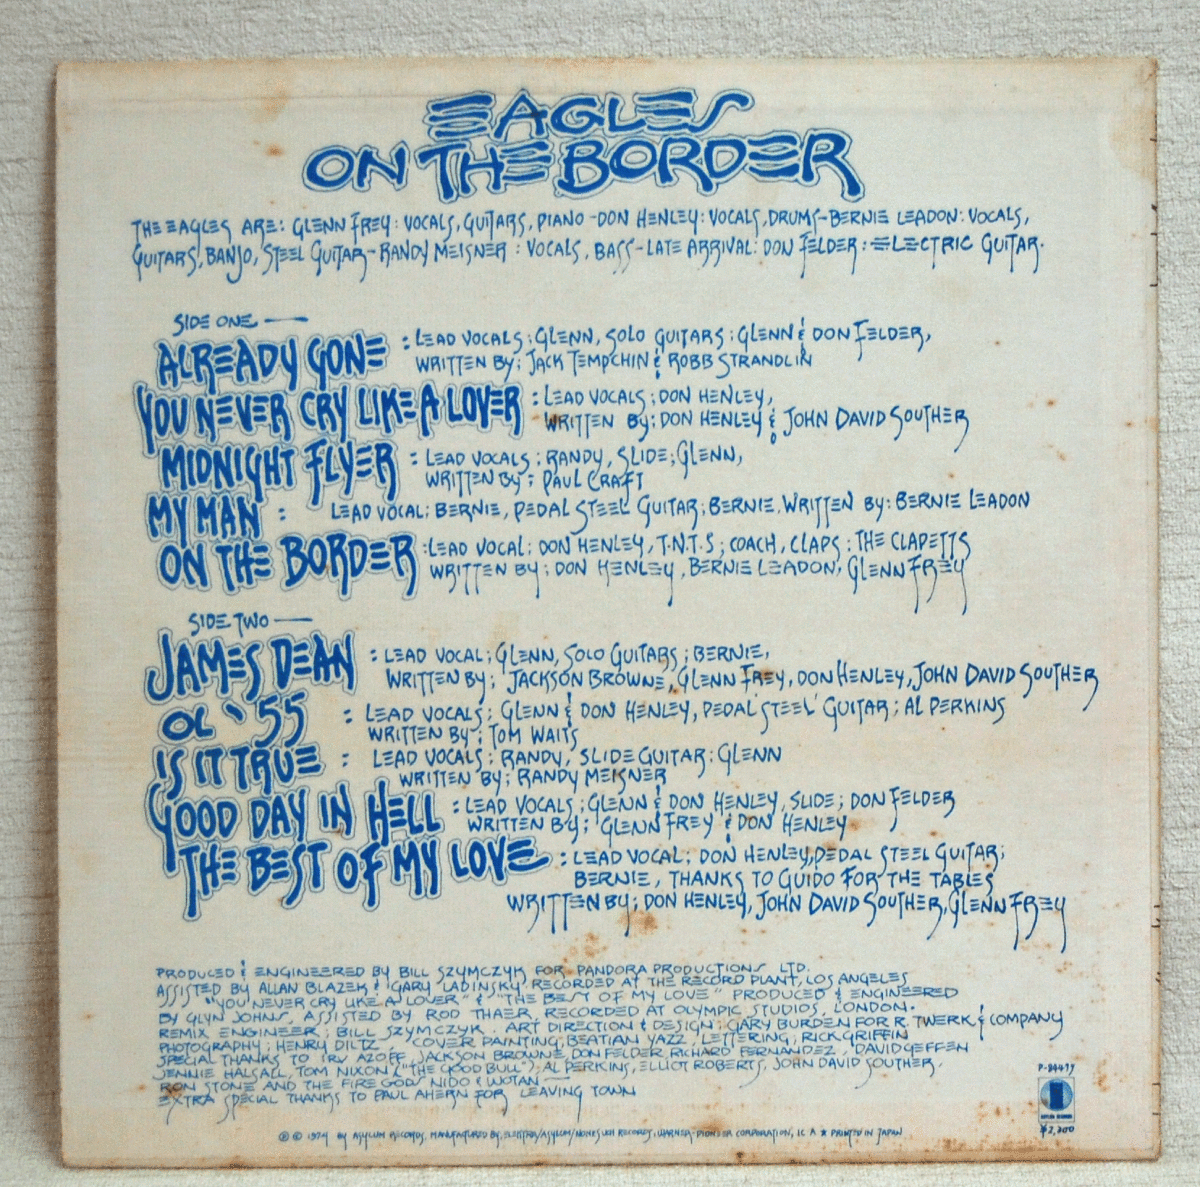 EAGLES
ON THE BORDER
THE EAGLES ARE: GLENN FREY: VOCALS, GUITARS, PIANO - DON HENLEY: VOCALS, DRUMS - BERNIE LEADON: VOCALS,
GUITARS, BANJO, STEEL GUITAR - RANDY MEISNER: VOCALS, BASS - LATE ARRIVAL: DON FELDER: ELECTRIC GUITAR.
SIDE ONE —
ALREADY GONE : LEAD VOCALS; GLENN, SOLO GUITARS; GLENN & DON FELDER,
WRITTEN BY; JACK TEMPCHIN & ROBB STRANDLIN
YOU NEVER CRY LIKE A LOVER : LEAD VOCALS; DON HENLEY,
WRITTEN BY: DON HENLEY & JOHN DAVID SOUTHER
MIDNIGHT FLYER : LEAD VOCALS; RANDY, SLIDE; GLENN,
WRITTEN BY; PAUL CRAFT
MY MAN : LEAD VOCAL; BERNIE, PEDAL STEEL GUITAR; BERNIE, WRITTEN BY: BERNIE LEADON
ON THE BORDER : LEAD VOCAL; DON HENLEY, T.N.T.S; COACH, CLAPS; THE CLAPETTS
WRITTEN BY; DON HENLEY, BERNIE LEADON, GLENN FREY
SIDE TWO —
JAMES DEAN : LEAD VOCAL; GLENN, SOLO GUITARS; BERNIE,
WRITTEN BY; JACKSON BROWNE, GLENN FREY, DON HENLEY, JOHN DAVID SOUTHER
OL '55 : LEAD VOCALS; GLENN & DON HENLEY, PEDAL STEEL GUITAR; AL PERKINS
WRITTEN BY; TOM WAITS
IS IT TRUE : LEAD VOCALS; RANDY, SLIDE GUITAR: GLENN
WRITTEN BY; RANDY MEISNER
GOOD DAY IN HELL : LEAD VOCALS; GLENN & DON HENLEY, SLIDE; DON FELDER
WRITTEN BY; GLENN FREY & DON HENLEY
THE BEST OF MY LOVE : LEAD VOCAL; DON HENLEY, PEDAL STEEL GUITAR;
BERNIE, THANKS TO GUIDO FOR THE TABLES
WRITTEN BY; DON HENLEY, JOHN DAVID SOUTHER, GLENN FREY
PRODUCED & ENGINEERED BY BILL SZYMCZYK FOR PANDORA PRODUCTIONS LTD.
ASSISTED BY ALLAN BLAZEK & GARY LADINSKY, RECORDED AT THE RECORD PLANT, LOS ANGELES
"YOU NEVER CRY LIKE A LOVER" & "THE BEST OF MY LOVE" PRODUCED & ENGINEERED
BY GLYN JOHNS, ASSISTED BY ROD THAER, RECORDED AT OLYMPIC STUDIOS, LONDON.
REMIX ENGINEER; BILL SZYMCZYK. ART DIRECTION & DESIGN; GARY BURDEN FOR R. TWERK & COMPANY
PHOTOGRAPHY; HENRY DILTZ. COVER PAINTING; BEATIAN YAZZ, LETTERING; RICK GRIFFIN
SPECIAL THANKS TO IRV AZOFF, JACKSON BROWNE, DON FELDER, RICHARD FERNANDEZ, DAVID GEFFEN
JENNIE HALSALL, TOM NIXON ("THE GOOD BULL"), AL PERKINS, ELLIOT ROBERTS, JOHN DAVID SOUTHER,
RON STONE AND THE FIRE GODS NIDO & WOTAN —
EXTRA SPECIAL THANKS TO PAUL AHERN FOR LEAVING TOWN
P-8447Y
ASYLUM RECORDS
¥2,200
℗ © 1974 BY ASYLUM RECORDS. MANUFACTURED BY ELEKTRA/ASYLUM/NONESUCH RECORDS, WARNER-PIONEER CORPORATION, PRINTED IN JAPAN